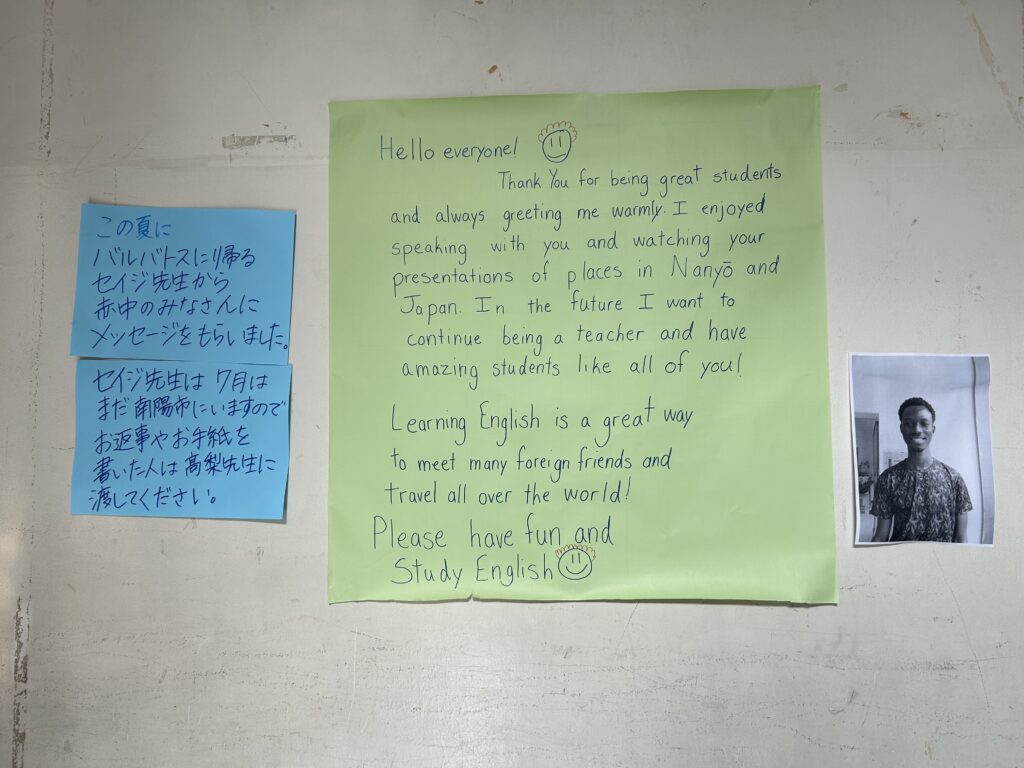 この夏に
バルバトスに帰る
セイジ先生から
赤中のみなさんに
メッセージをもらいました。
セイジ先生は 7月は
まだ南陽市にいますので
お返事やお手紙を
書いた人は高梨先生に
渡してください。
Hello everyone!
Thank You for being great students
and always greeting me warmly. I enjoyed
speaking with you and watching your
presentations of places in Nanyō and
Japan. In the future I want to
continue being a teacher and have
amazing students like all of you!
Learning English is a great way
to meet many foreign friends and
travel all over the world!
Please have fun and
Study English